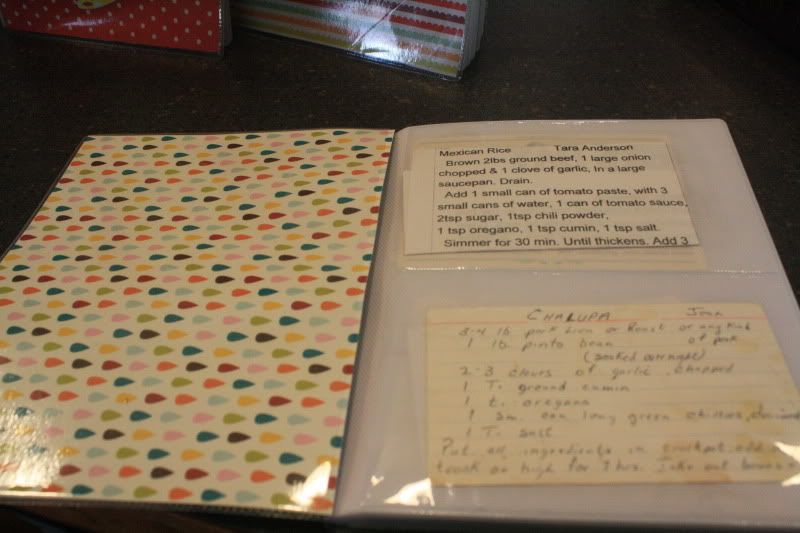 Mexican Rice Tara Anderson
Brown 2lbs ground beef, 1 large onion
chopped & 1 clove of garlic, In a large
saucepan. Drain.
Add 1 small can of tomato paste, with 3
small cans of water, 1 can of tomato sauce,
2tsp sugar, 1tsp chili powder,
1 tsp oregano, 1 tsp cumin, 1 tsp salt.
Simmer for 30 min. Until thickens. Add 3
CHALUPA
3-4 lb pork Lion or Roast or any kind
of pork
1 lb. pinto bean
(soaked overnight)
2-3 cloves of garlic chopped
1 T. ground cumin
1 t. oregano
1 sm. can long green chillies,
1 T. salt
Put all ingredients in crockpot, add
cook on high for 7 hrs. Take out bones